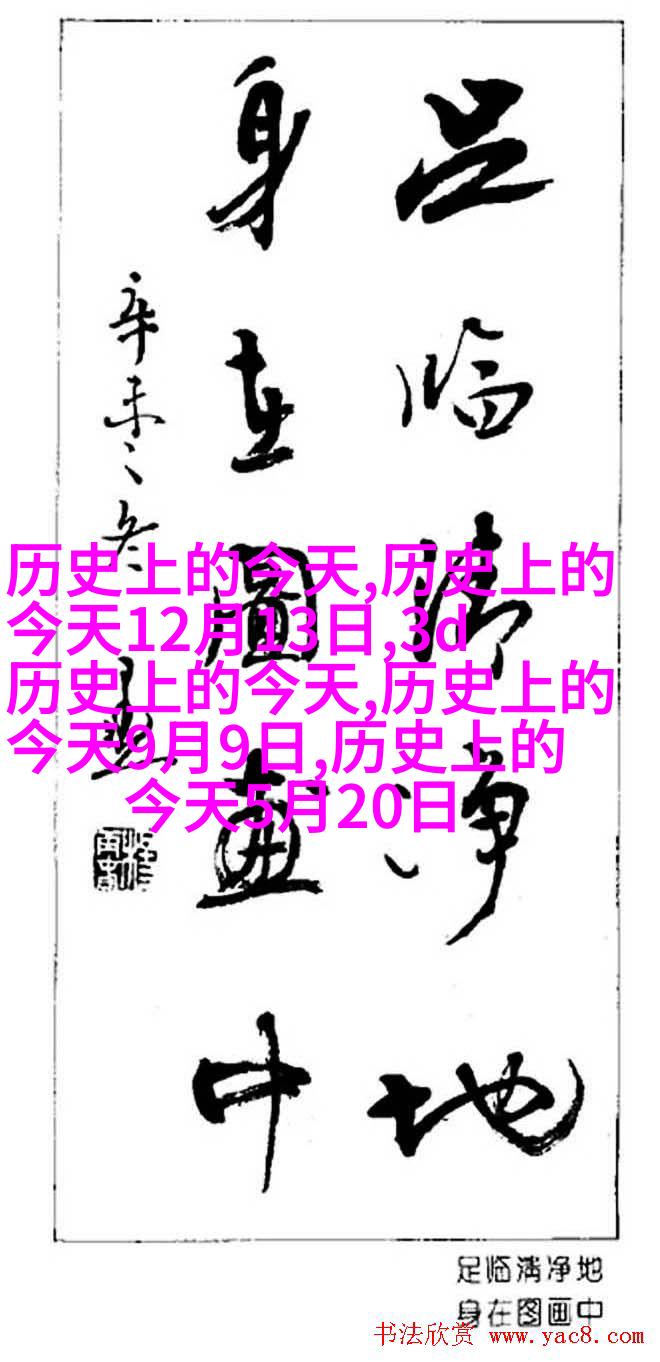 足临清净地
身在圖畫中
辛未之冬
历史上的今天,历史上的
今天12月13日,3d
历史上的今天,历史上的
今天9月9日,历史上的
今天5月20日
足临清净地
身在图画中
书法欣赏 www.yac8.com